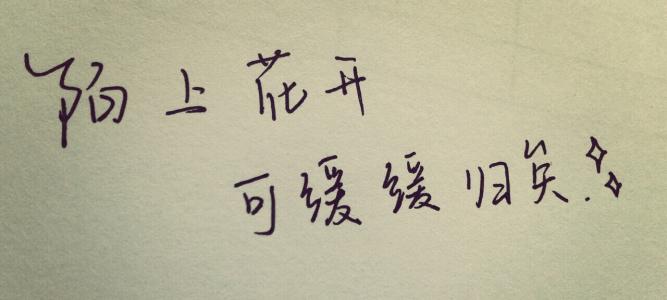 陌上花开
可缓缓归矣.